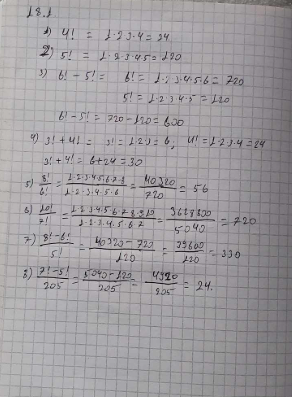 18.1
1) 4! = 1·2·3·4 = 24
2) 5! = 1·2·3·4·5 = 120
3) 6! - 5! = 6! = 1·2·3·4·5·6 = 720
5! = 1·2·3·4·5 = 120
6! - 5! = 720 - 120 = 600
4) 3! + 4! = 3! = 1·2·3 = 6, 4! = 1·2·3·4 = 24
3! + 4! = 6 + 24 = 30
5) 8!/6! = 1·2·3·4·5·6·7·8/1·2·3·4·5·6 = 40320/720 = 56
6) 10!/7! = 1·2·3·4·5·6·7·8·9·10/1·2·3·4·5·6·7 = 3628800/5040 = 720
7) 8! - 6!/5! = 40320 - 720/120 = 39600/120 = 330
8) 7! - 5!/205 = 5040 - 120/205 = 4920/205 = 24.